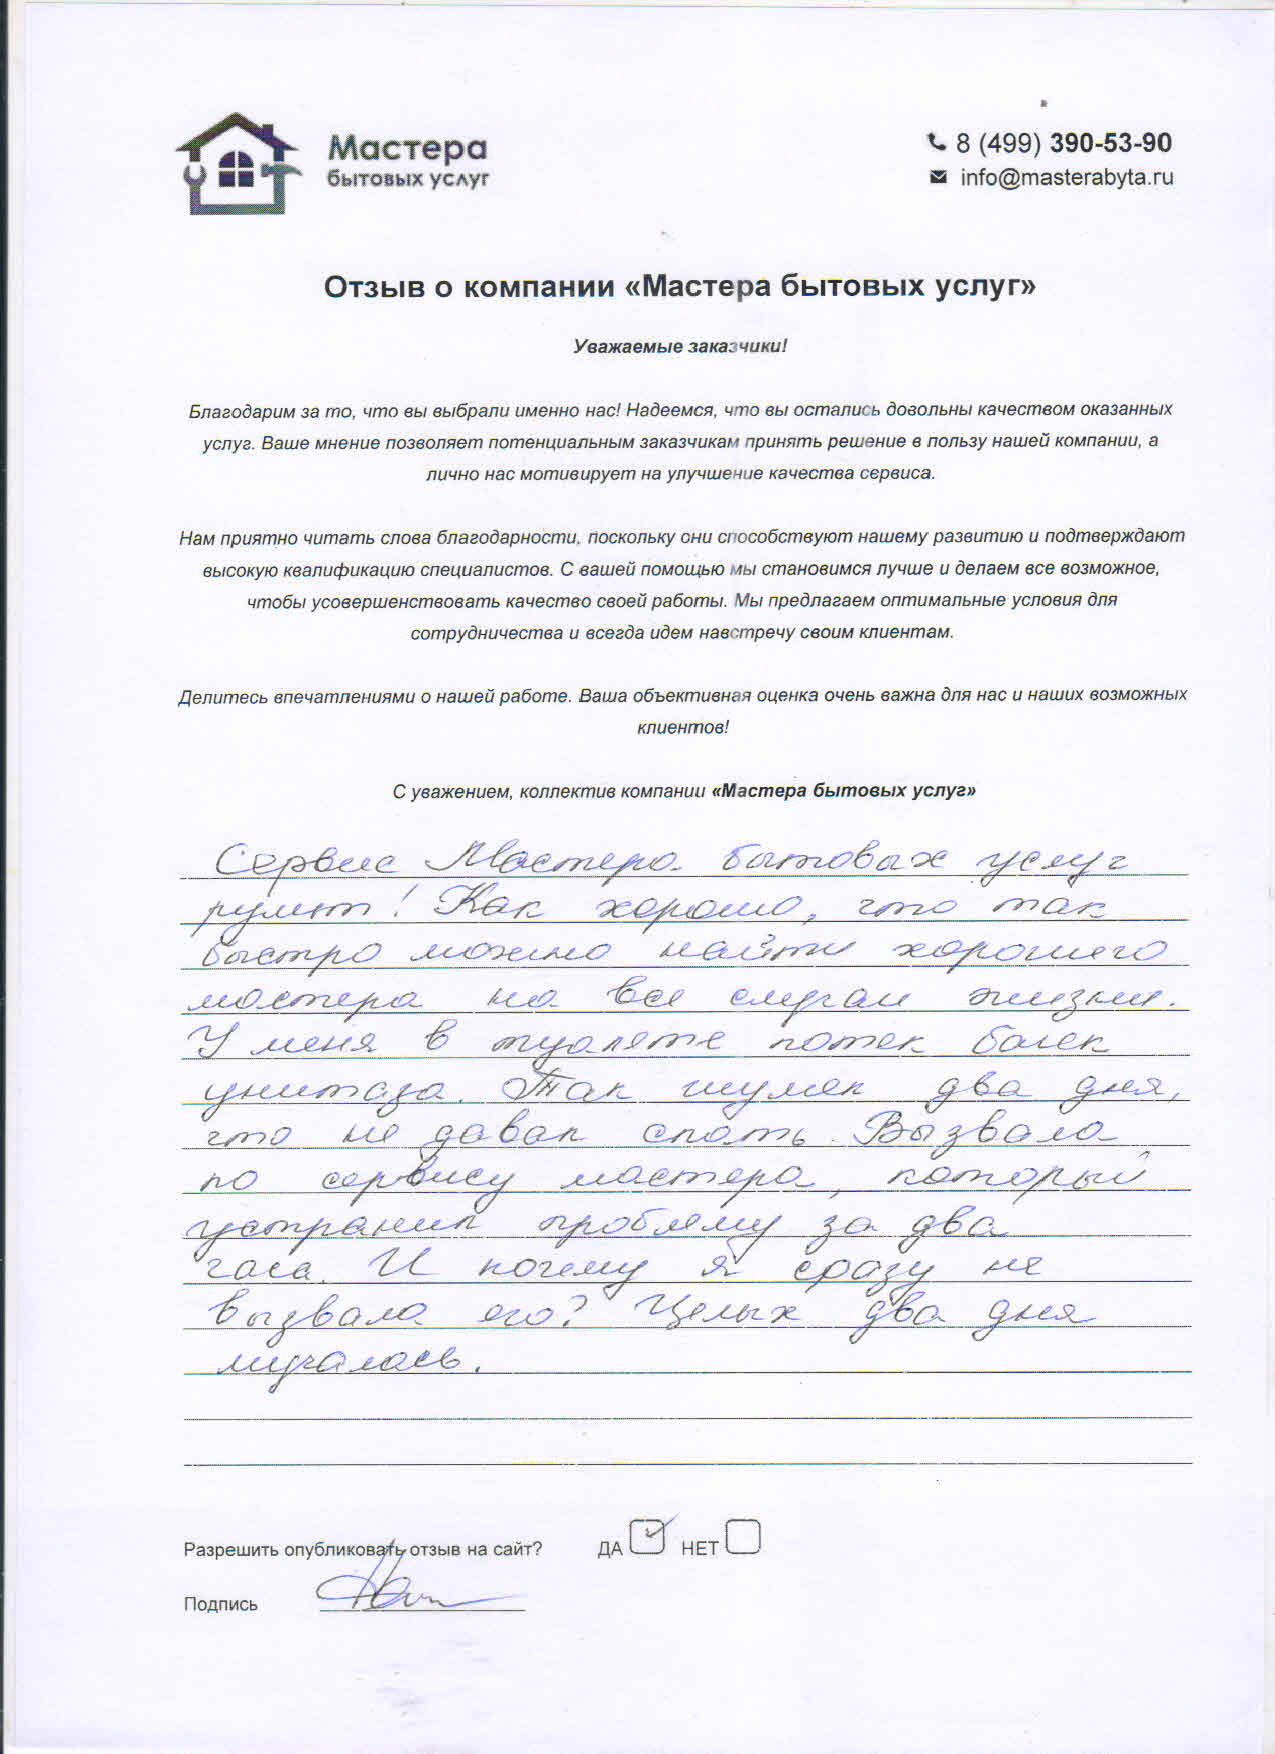 Мастера
бытовых услуг
8 (499) 390-53-90
info@masterabyta.ru
Отзыв о компании «Мастера бытовых услуг»
Уважаемые заказчики!
Благодарим за то, что вы выбрали именно нас! Надеемся, что вы остались довольны качеством оказанных
услуг. Ваше мнение позволяет потенциальным заказчикам принять решение в пользу нашей компании, а
лично нас мотивирует на улучшение качества сервиса.
Нам приятно читать слова благодарности, поскольку они способствуют нашему развитию и подтверждают
высокую квалификацию специалистов. С вашей помощью мы становимся лучше и делаем все возможное,
чтобы усовершенствовать качество своей работы. Мы предлагаем оптимальные условия для
сотрудничества и всегда идем навстречу своим клиентам.
Делитесь впечатлениями о нашей работе. Ваша объективная оценка очень важна для нас и наших возможных
клиентов!
С уважением, коллектив компании «Мастера бытовых услуг»
Сервис Мастера бытовых услуг
рулит! Как хорошо, что так
быстро можно найти хорошего
мастера на все случаи жизни.
У меня в туалете потек бачек
унитаза. Так шумел два дня,
что не давал спать. Вызвала
по сервису мастера, который
устранил проблему за два
часа. И почему я сразу не
вызвала его? Целых два дня
мучалась.
Разрешить опубликовать отзыв на сайт? ДА НЕТ
Подпись